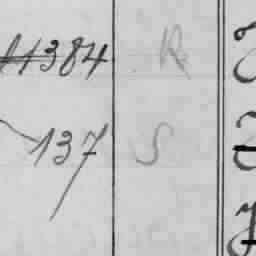 11384 R
137 S